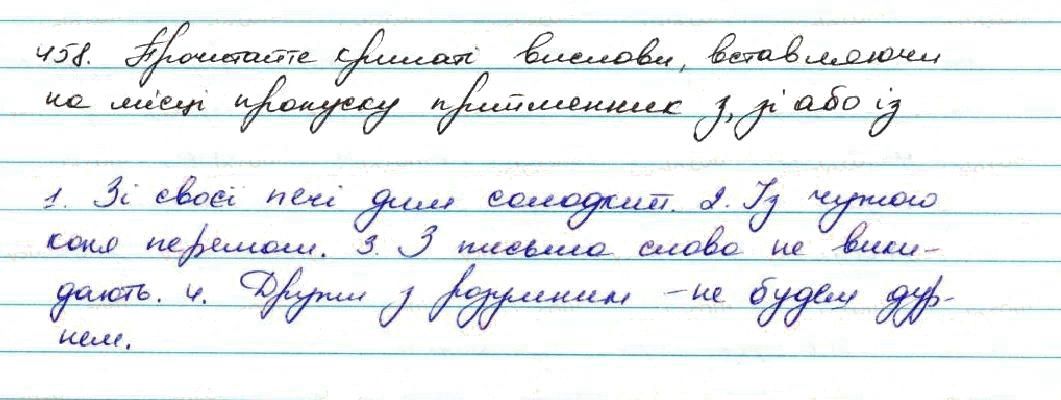 458. Прочитайте крилаті вислови, вставляючи
на місці пропуску прийменник з, зі або із
1. Зі своєї печі дим солодкий. 2. Із чужого
коня перемом. 3. З письма слово не вики-
дають. 4. Дружи з розумним – не будеш дур-
нем.